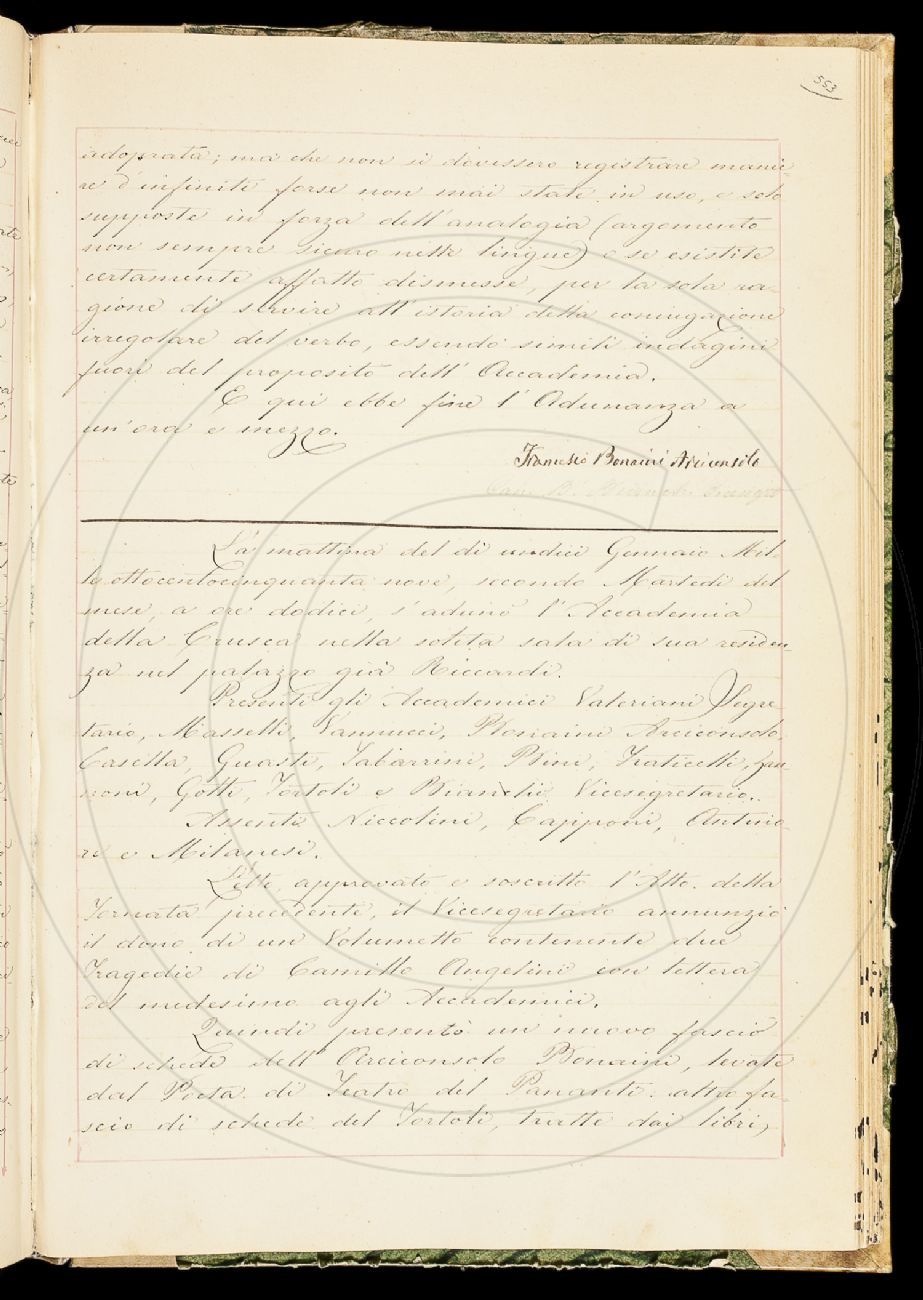 553
adoprata; ma che non si dovessero registrare manie-
re d'infiniti forse non mai state in uso, e solo
supposte in forza dell'analogia (argomento
non sempre sicuro nelle lingue) o se esistite
certamente affatto dismesse, per la sola ra-
gione di servire all'istoria della coniugazione
irregolare del verbo, essendo simili indagini
fuori del proposito dell'Accademia.
E qui ebbe fine l'Adunanza a
un'ora e mezzo.
Francesco Bonaini Arciconsolo
La mattina del dì undici Gennaio Mil-
le ottocentocinquanta nove, secondo Martedì del
mese, a ore dodici, s'adunò l'Accademia
della Crusca nella solita sala di sua residen-
za nel palazzo già Riccardi.
Presenti gli Accademici Valeriani Segre-
tario, Masselli, Vannucci, Bonaini Arciconsolo,
Casella, Guasti, Tabarrini, Bini, Fraticelli, Zan-
noni, Gotti, Tortoli e Bianchi Vicesegretario.
Assenti Niccolini, Capponi, Antino-
ri e Milanesi.
Letto, approvato e soscritto l'Atto della
Tornata precedente, il Vicesegretario annunziò
il dono di un Volumetto contenente due
Tragedie di Camillo Angelini con lettera
del medesimo agli Accademici.
Quindi presentò un nuovo fascio
di schede dell'Arciconsolo Bonaini, levate
dal Poeta di Teatro del Pananti: altro fa-
scio di schede del Tortoli, tratte dai libri,